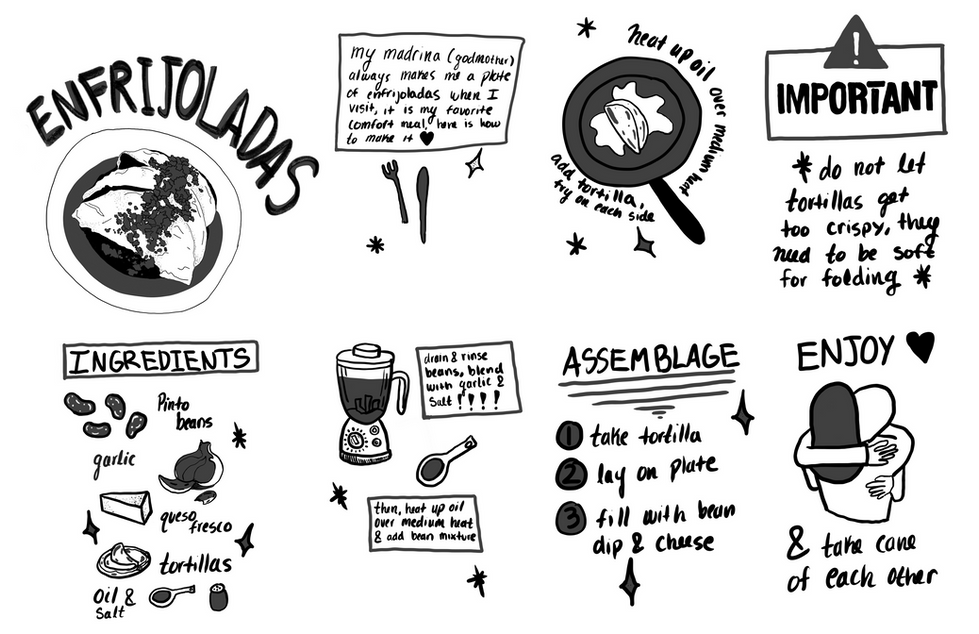 ENFRIJOLADAS
my madrina (godmother)
always makes me a plate
of enfrijoladas when I
visit, it is my favorite
comfort meal, here is how
to make it ♥
heat up oil over medium heat
add tortilla,
fry on each side
!
IMPORTANT
* do not let
tortillas get
too crispy, they
need to be soft
for folding *
INGREDIENTS
Pinto
beans
garlic
queso
fresco
tortillas
Oil &
Salt
drain & rinse
beans, blend
with garlic &
Salt !!!!
then, heat up oil
over medium heat
& add bean mixture
ASSEMBLAGE
1 take tortilla
2 lay on plate
3 fill with bean
dip & cheese
ENJOY ♥
& take care
of each other